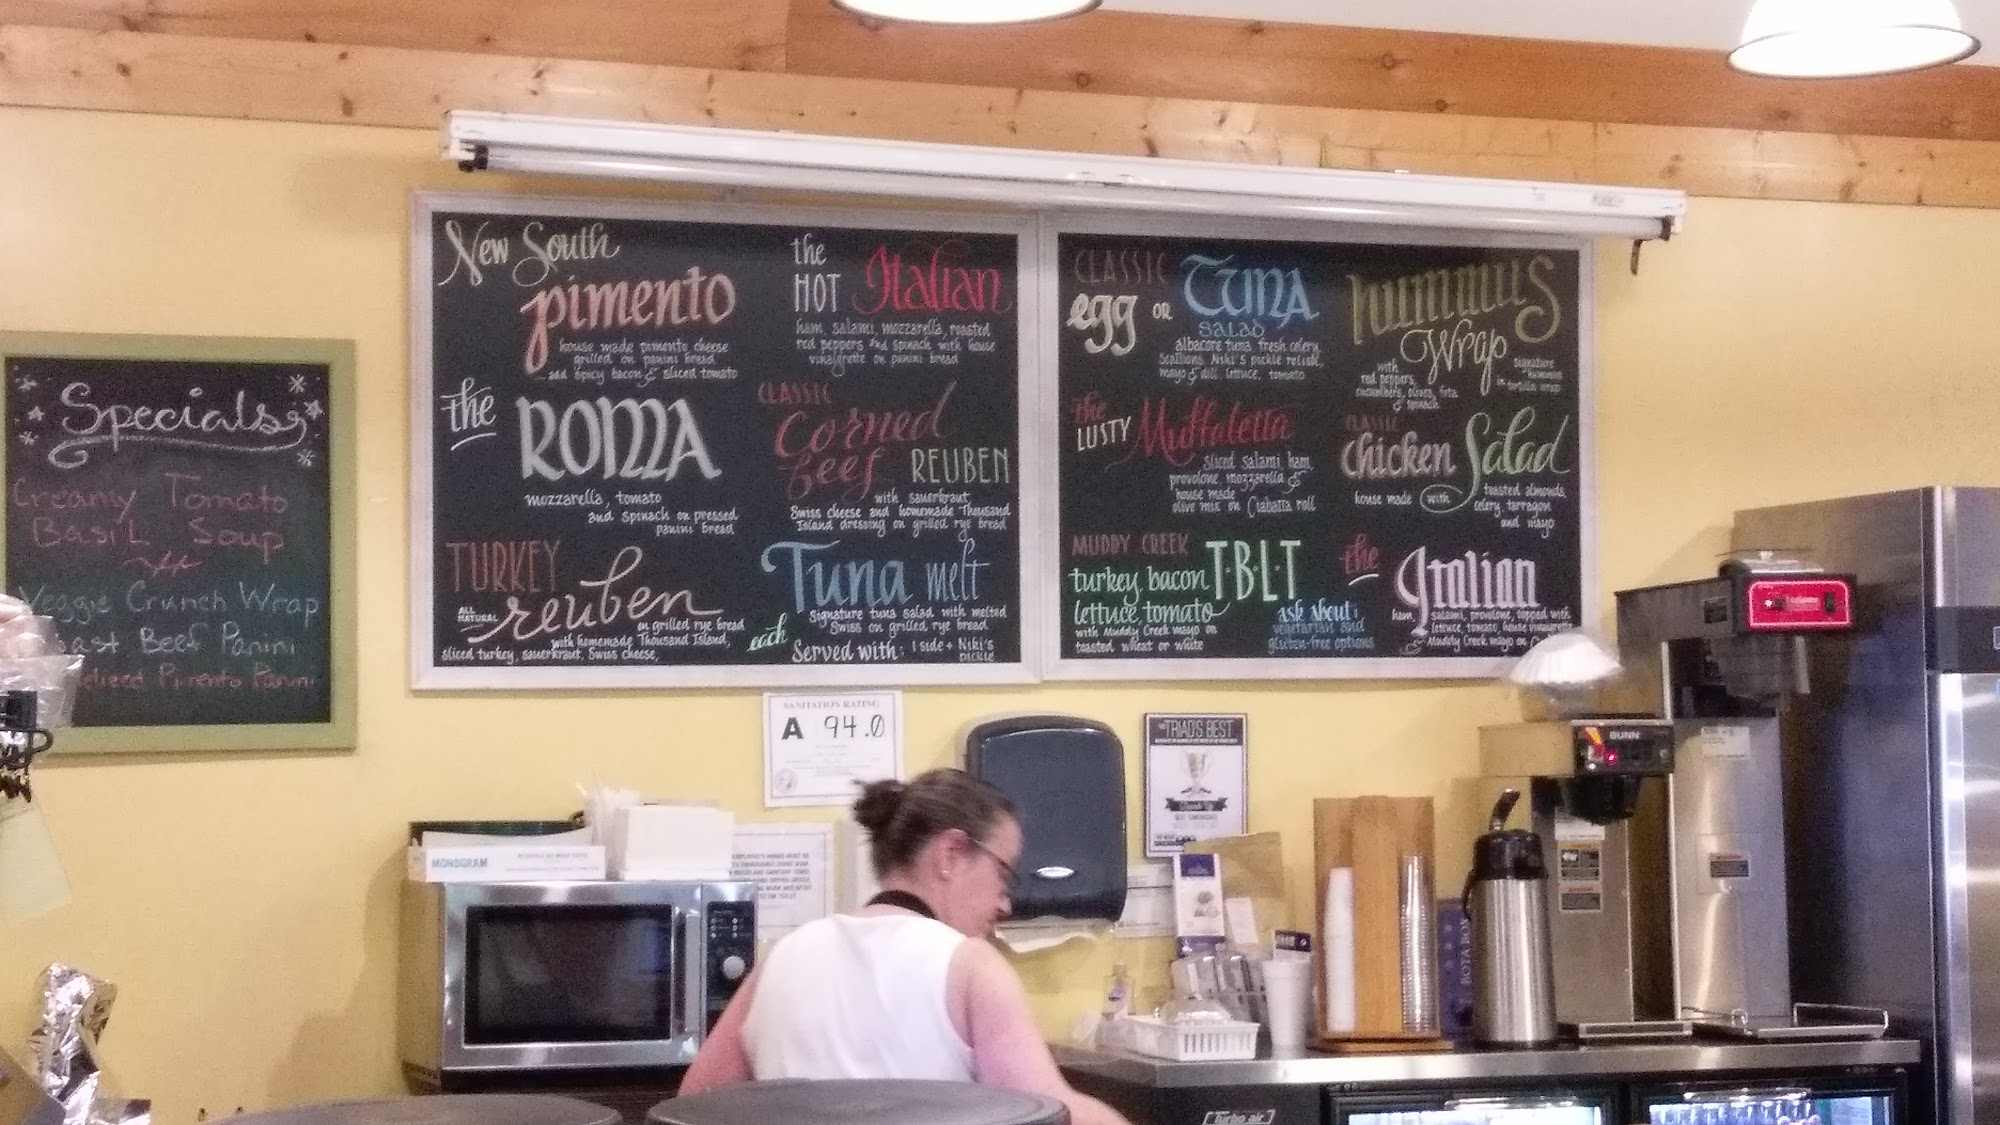 Specials
Creamy Tomato
Basil Soup
Veggie Crunch Wrap
Beef Panini
Pimento Panini
New South
pimento
house made pimento cheese
grilled on panini bread
and spicy bacon & sliced tomato
the
HOT Italian
ham, salami, mozzarella, roasted
red peppers and spinach with house
vinaigrette on panini bread
the
ROMA
mozzarella, tomato
and spinach on pressed
panini bread
CLASSIC
Corned
beef REUBEN
with sauerkraut,
Swiss cheese and homemade Thousand
Island dressing on grilled rye bread
TURKEY
ALL
NATURAL
reuben
on grilled rye bread
with homemade Thousand Island,
sliced turkey, sauerkraut, Swiss cheese,
Tuna melt
signature tuna salad with melted
Swiss on grilled rye bread
each
Served with: 1 side + Niki's
pickle
CLASSIC
egg OR TUNA
SALAD
albacore tuna, fresh celery,
scallions, Niki's pickle relish,
mayo & dill, lettuce, tomato
hummus
Wrap
with
red peppers,
cucumbers, olives, feta
& spinach
signature
hummus
in tortilla wrap
the
LUSTY Muffaletta
sliced salami, ham,
provolone, mozzarella &
house made
olive mix on Ciabatta roll
CLASSIC
chicken Salad
house made with toasted almonds,
celery, tarragon
and mayo
MUDDY CREEK T·B·L·T
turkey, bacon
lettuce, tomato
with Muddy Creek mayo on
toasted wheat or white
ask about:
vegetarian and
gluten-free options
the
Italian
ham, salami, provolone, topped with
lettuce, tomato, house vinaigrette
& Muddy Creek mayo on
SANITATION RATING
A 94.0
TRIAD'S BEST
BEST SANDWICHES
MONOGRAM
BUNN
Turbo air